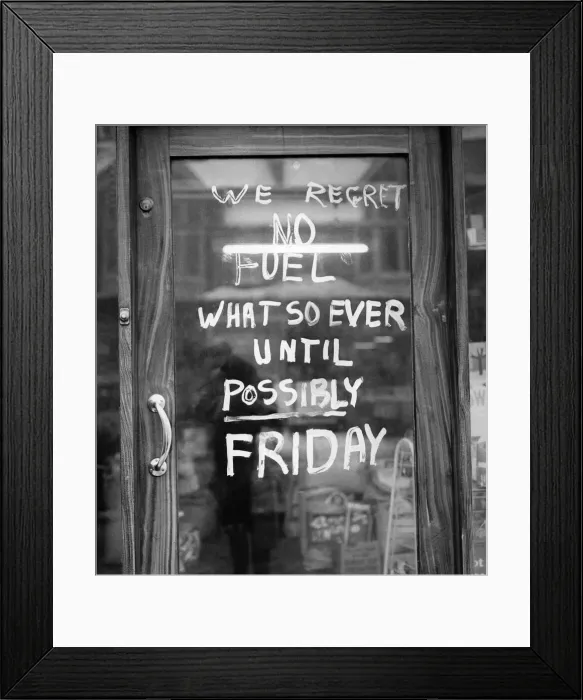 WE REGRET
NO
FUEL
WHAT SO EVER
UNTIL
POSSIBLY
FRIDAY